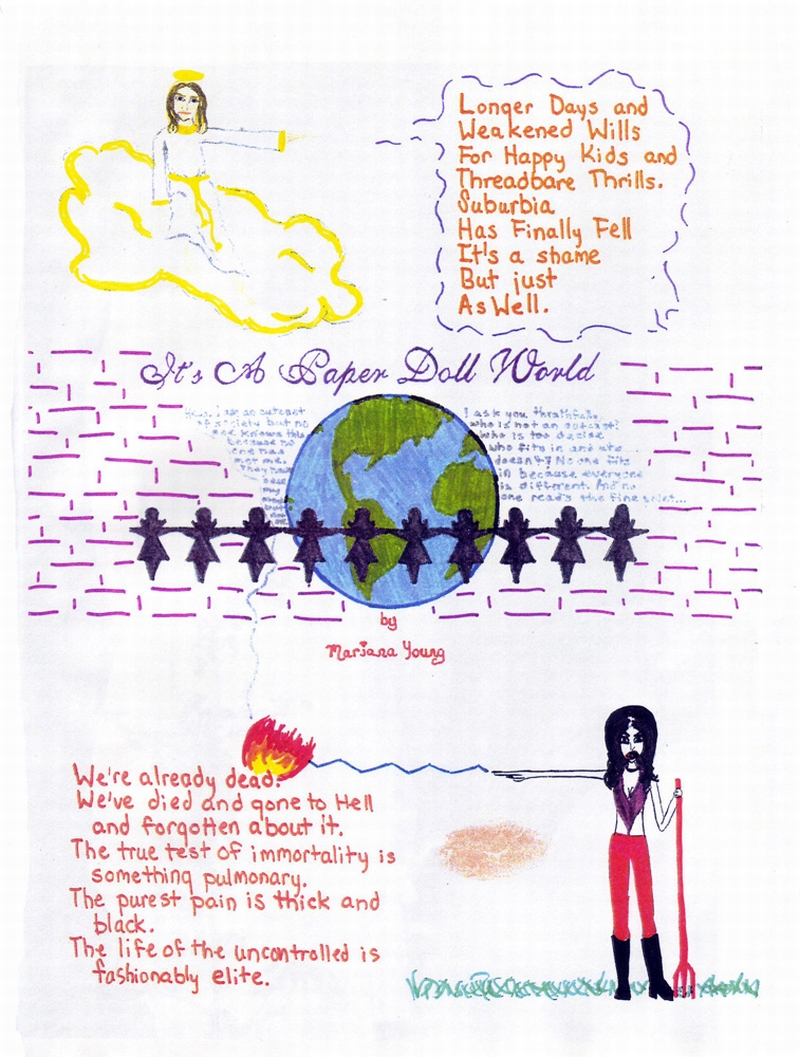 Longer Days and
Weakened Wills
For Happy Kids and
Threadbare Thrills.
Suburbia
Has Finally Fell
It's a shame
But just
As Well.
It's A Paper Doll World
I am an outcast
of society but no
one knows this
because no
one has
met me.
They had
my
I ask you
who is not an outcast?
who is to decide
who fits in and who
doesn't? No one fits
in because everyone
is different. And no
one reads the fine print...
by
Mariana Young
We're already dead.
We've died and gone to Hell
and forgotten about it.
The true test of immortality is
something pulmonary.
The purest pain is thick and
black.
The life of the uncontrolled is
fashionably elite.